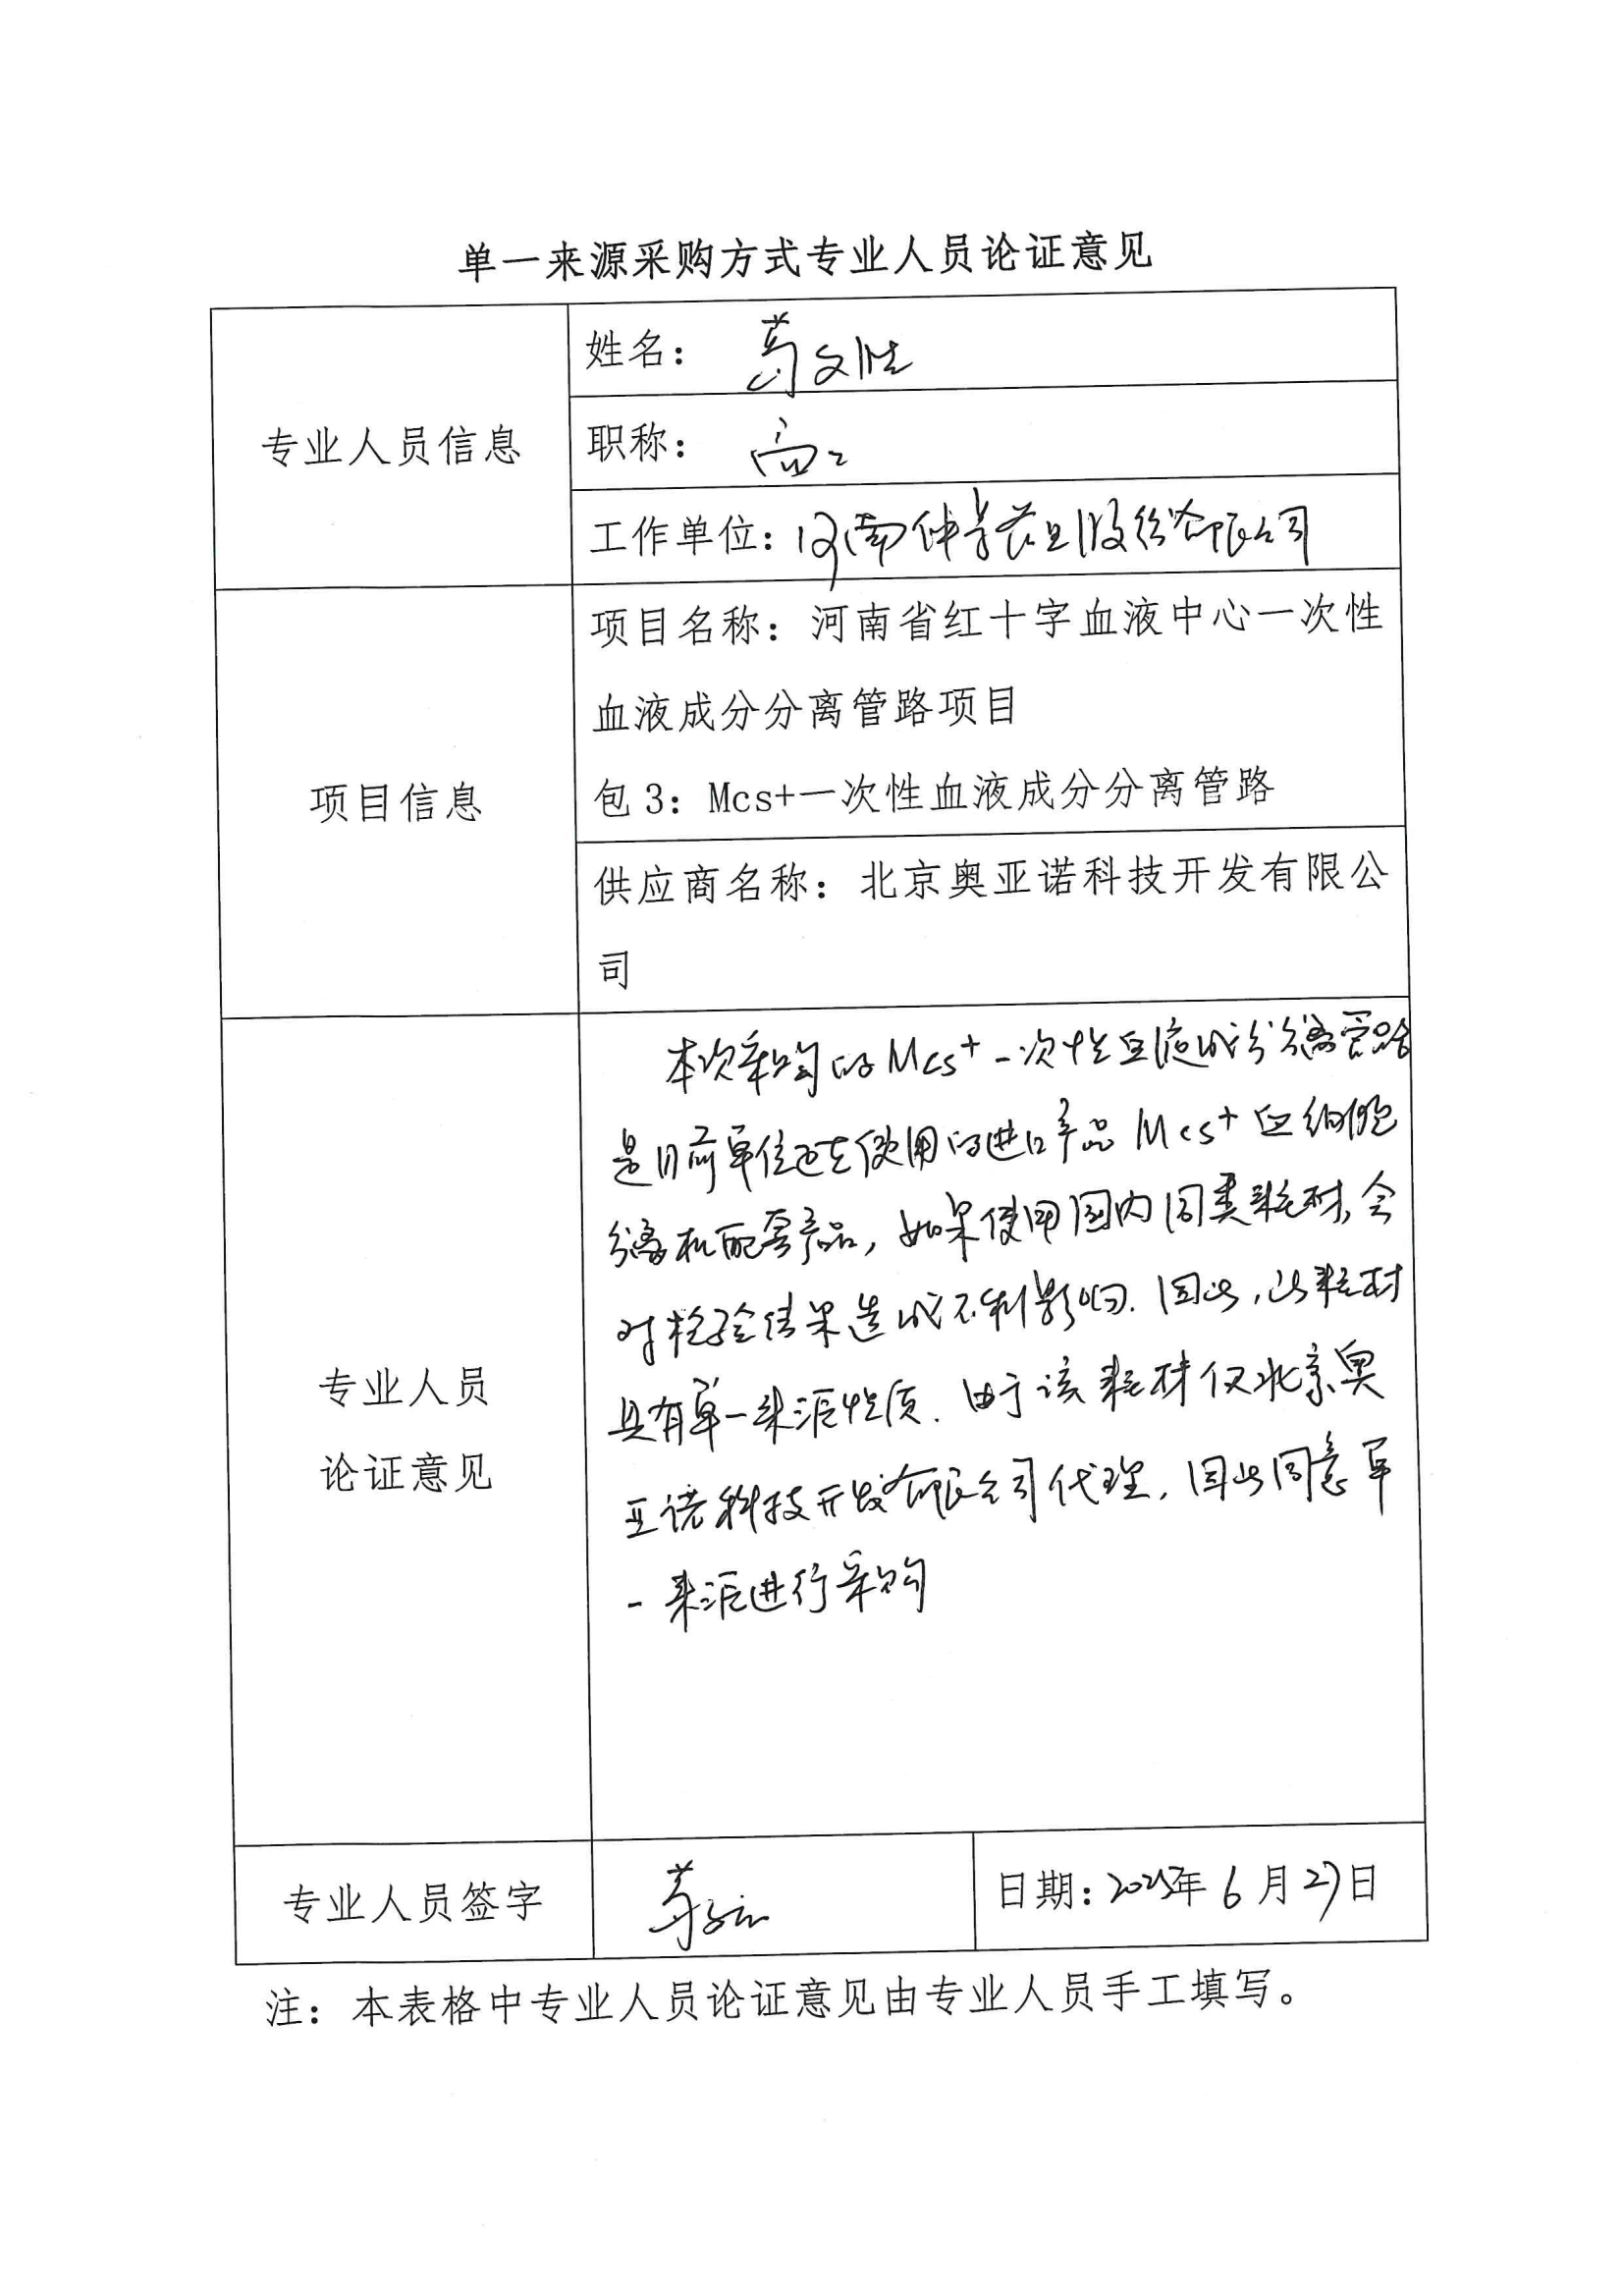 单一来源采购方式专业人员论证意见
专业人员信息
姓名：葛文胜
职称：高工
工作单位：河南仲景农旦股份有限公司
项目信息
项目名称：河南省红十字血液中心一次性
血液成分分离管路项目
包3：Mcs+一次性血液成分分离管路
供应商名称：北京奥亚诺科技开发有限公
司
专业人员
论证意见
本次采购的Mcs+一次性血液成分分离管路
是目前单位正在使用的进口产品Mcs+血细胞
分离机配套产品，如果使用国内同类耗材，会
对检验结果造成不利影响．因此，此耗材
具有单一来源性质．由于该耗材仅北京奥
亚诺科技开发有限公司代理，因此同意单
一来源进行采购
专业人员签字
日期：2025年6月27日
注：本表格中专业人员论证意见由专业人员手工填写。